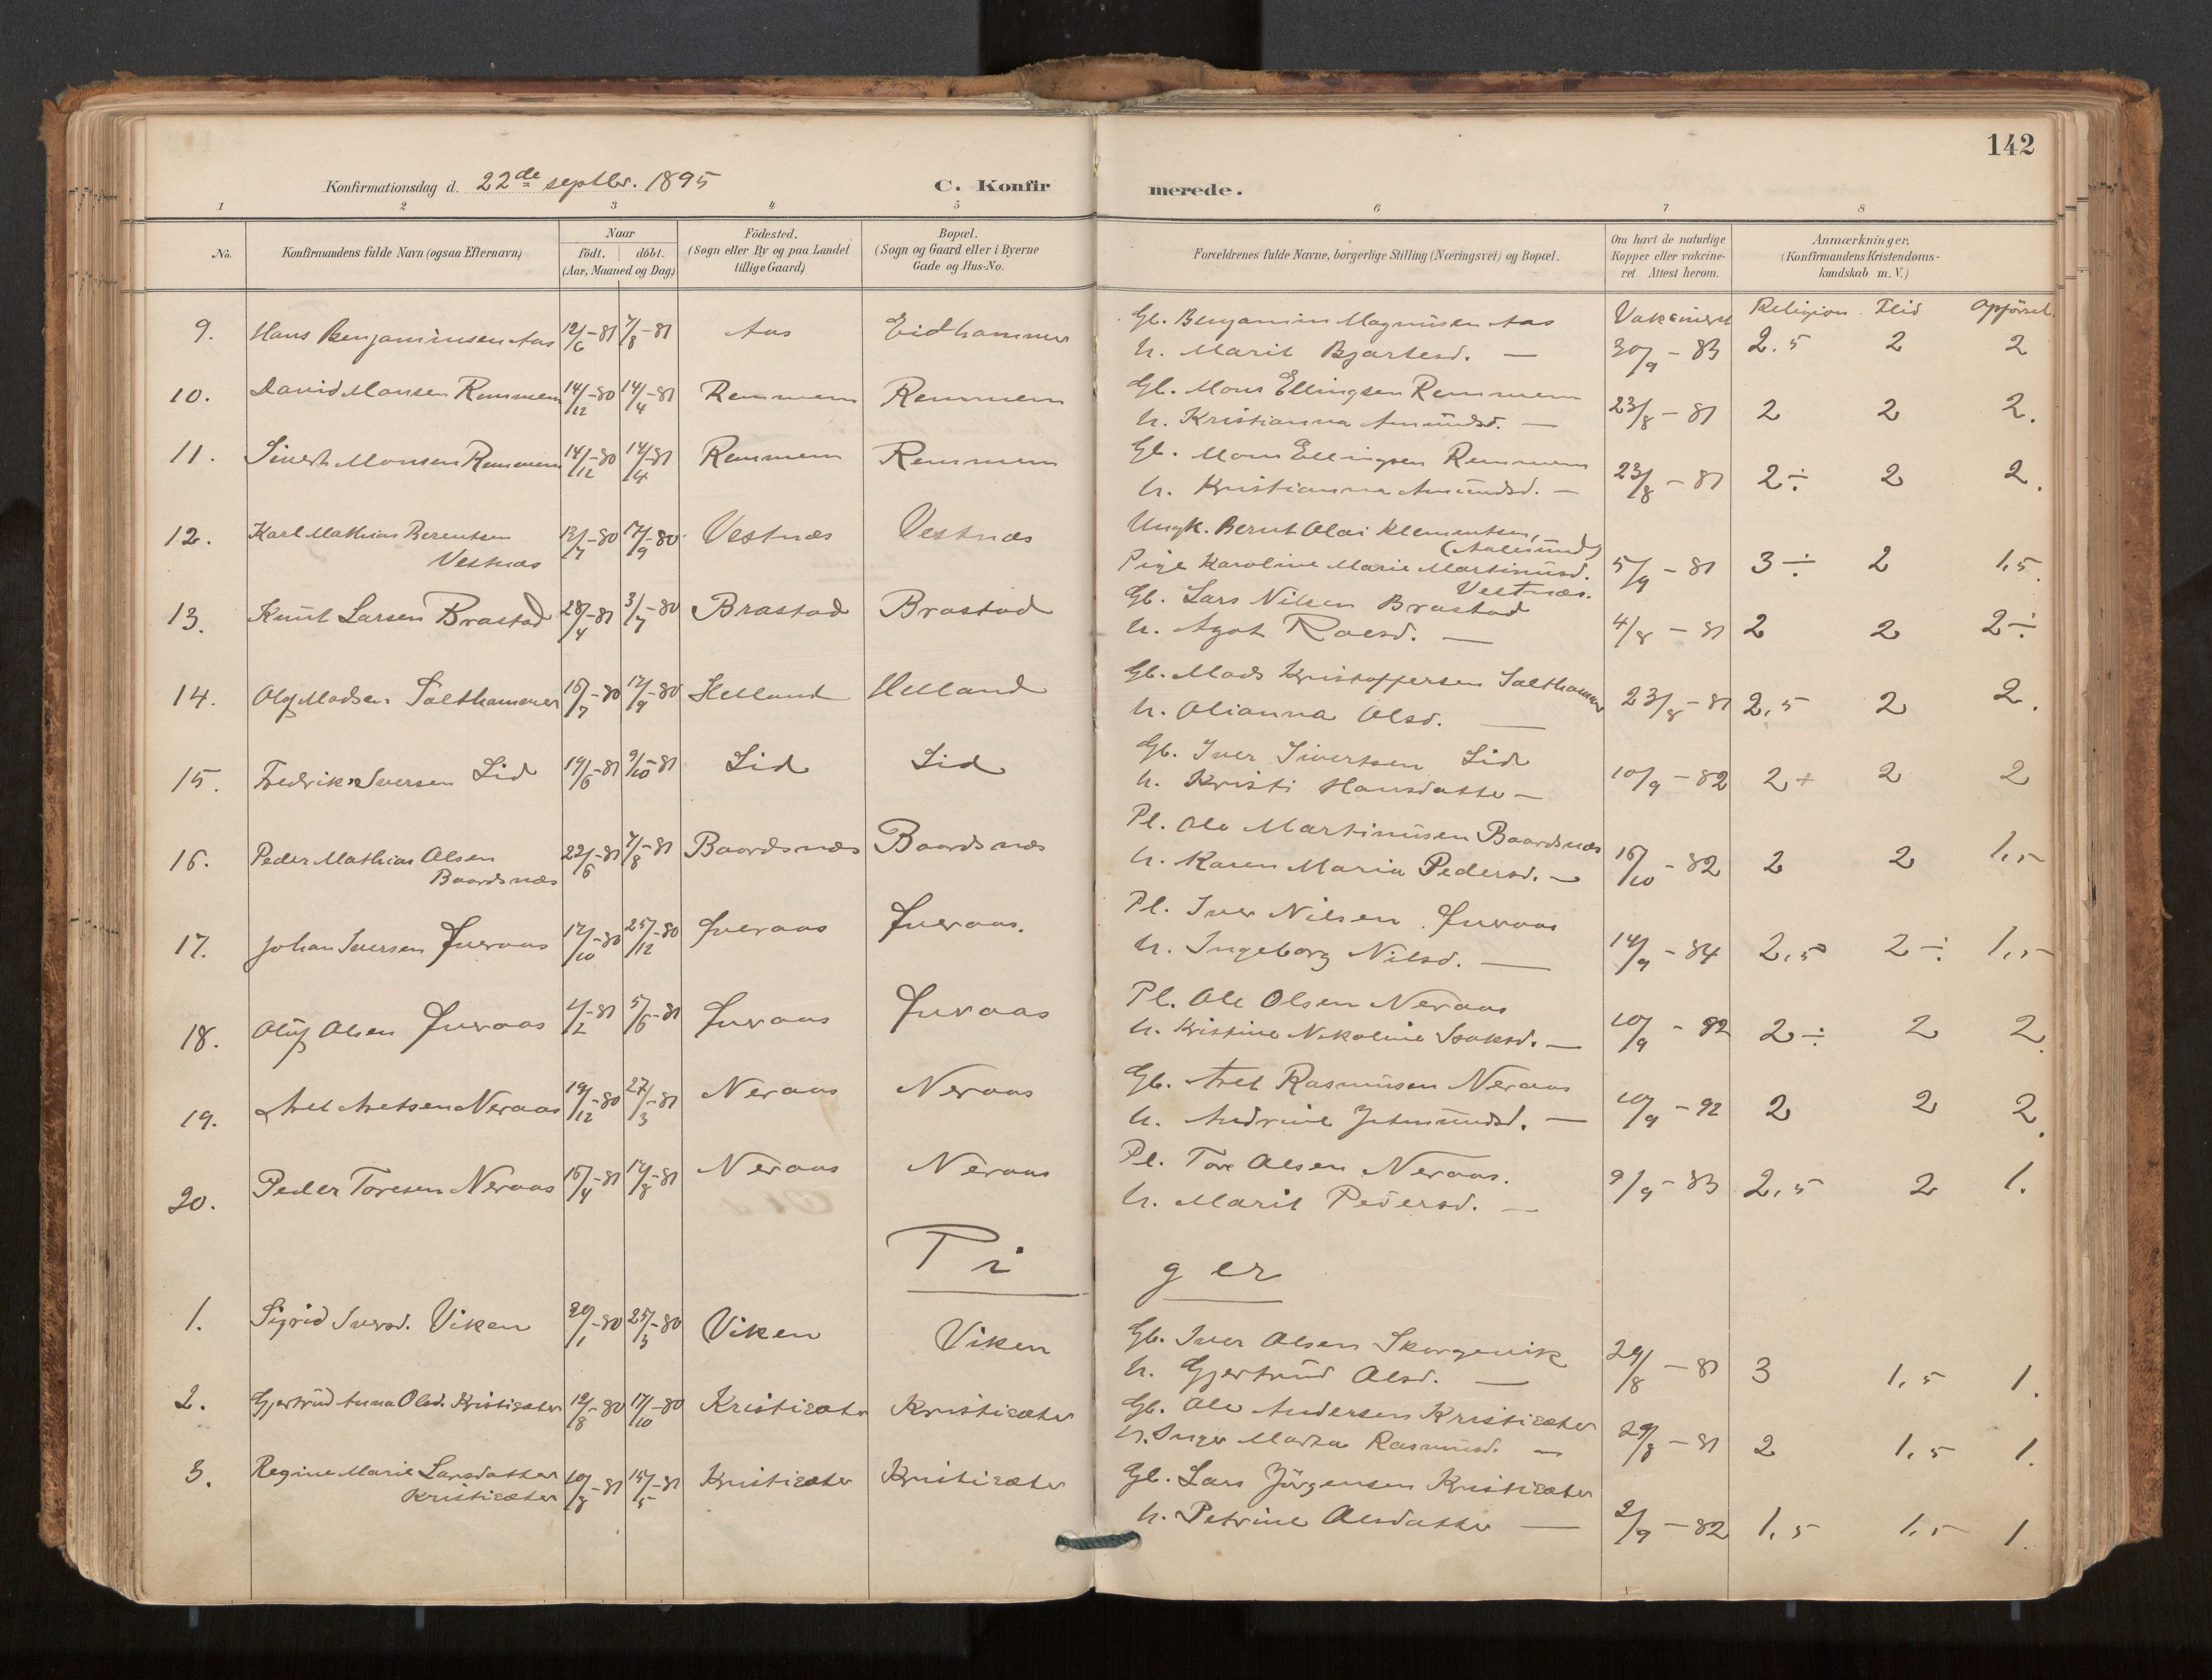 142
Konfirmationsdag d. 22de septbr. 1895 C. Konfirmerede.
1 2 3 4 5 6 7 8
No. Konfirmandens fulde Navn (ogsaa Efternavn) Naar födt. döbt. (Aar, Maaned og Dag) Födested. (Sogn eller By og paa Landet tillige Gaard) Bopæl. (Sogn og Gaard eller i Byerne Gade og Hus-No. Forældrenes fulde Navne, borgerlige Stilling (Næringsvei) og Bopæl. Om havt de naturlige Kopper eller vakcineret. Attest herom. Anmærkninger, (Konfirmandens Kristendomskundskab m. V.)
Vakcineret Religion Flid Opförsel.
9. Hans Benjaminsen Aas 12/6-81 7/8-81 Aas Eidhammer Gb. Benjamin Magnusen Aas
h. Marit Bjartesd. — 30/9-83 2.5 2 2
10. David Monsen Remmem 14/12-80 14/4-81 Remmem Remmem Gb. Mons Ellingsen Remmem
h. Kristianna Amundsd. — 23/8-81 2 2 2.
11. Sivert Monsen Remmem 14/12-80 14/4-81 Remmem Remmem Gb. Mons Ellingsen Remmem
h. Kristianna Amundsd. — 23/8-81 2÷ 2 2.
12. Karl Mathias Berentsen Vestnæs 12/7-80 17/9-80 Vestnæs Vestnæs Ungk. Bernt Olai Klementsen, (Aalesund)
Pige Karoline Marie Martinusd. Vestnæs. 5/9-81 3÷ 2 1,5.
13. Knut Larsen Brastad 28/4-81 3/7-80 Brastad Brastad Gb. Lars Nilsen Brastad
h. Agot Roesd. — 4/8-81 2 2 2÷
14. Oluf Madsen Salthammer 16/7-80 12/9-80 Helland Helland Gb. Mads Kristoffersen Salthammer
h. Olianna Olsd. — 23/8-81 2,5 2 2.
15. Fredrik Iversen Lid 19/6-81 9/10-81 Lid Lid Gb. Iver Sivertsen Lid
h. Kristi Hansdatter — 10/9-82 2+ 2 2
16. Peder Mathias Olsen Baardsnæs 22/6-81 7/8-81 Baardsnæs Baardsnæs Pl. Ole Martinusen Baardsnæs
h. Karen Maria Pedersd. — 16/10-82 2 2 1,5
17. Johan Iversen Furaas 17/10-80 25/12-80 Furaas Furaas. Pl. Iver Nilsen Furaas
h. Ingeborg Nilsd. — 14/9-84 2,5 2÷ 1,5
18. Oluf Olsen Furaas 4/2-81 5/6-81 Furaas Furaas Pl. Ole Olsen Neraas
h. Kristine Nikoline Isaksd. — 10/9-82 2÷ 2 2.
19. Aret Aretsen Neraas 19/12-80 27/3-81 Neraas Neraas Gb. Aret Rasmusen Neraas
h. Andrine Jetmundsd. — 10/9-92 2 2 2.
20. Peder Toresen Neraas 16/4-81 14/8-81 Neraas Neraas Pl. Tore Olsen Neraas.
h. Marit Pedersd. — 9/9-83 2,5 2 1.
Piger
1. Sigrid Iversd. Viken 20/1-80 25/3-80 Viken Viken Gb. Iver Olsen Skorgevik
h. Gjertrud Olsd. — 24/8-81 3 1,5 1.
2. Gjertrud Anna Olsd. Kristisæter 12/8-80 17/10-80 Kristisæter Kristisæter Gb. Ole Andersen Kristisæter
h. Inger Marta Rasmusd. — 29/8-81 2 1,5 1.
3. Regine Marie Larsdatter Kristisæter 10/3-81 15/5-81 Kristisæter Kristisæter Gb. Lars Jörgensen Kristisæter
h. Petrine Olsdatter — 2/9-82 1,5 1,5 1.